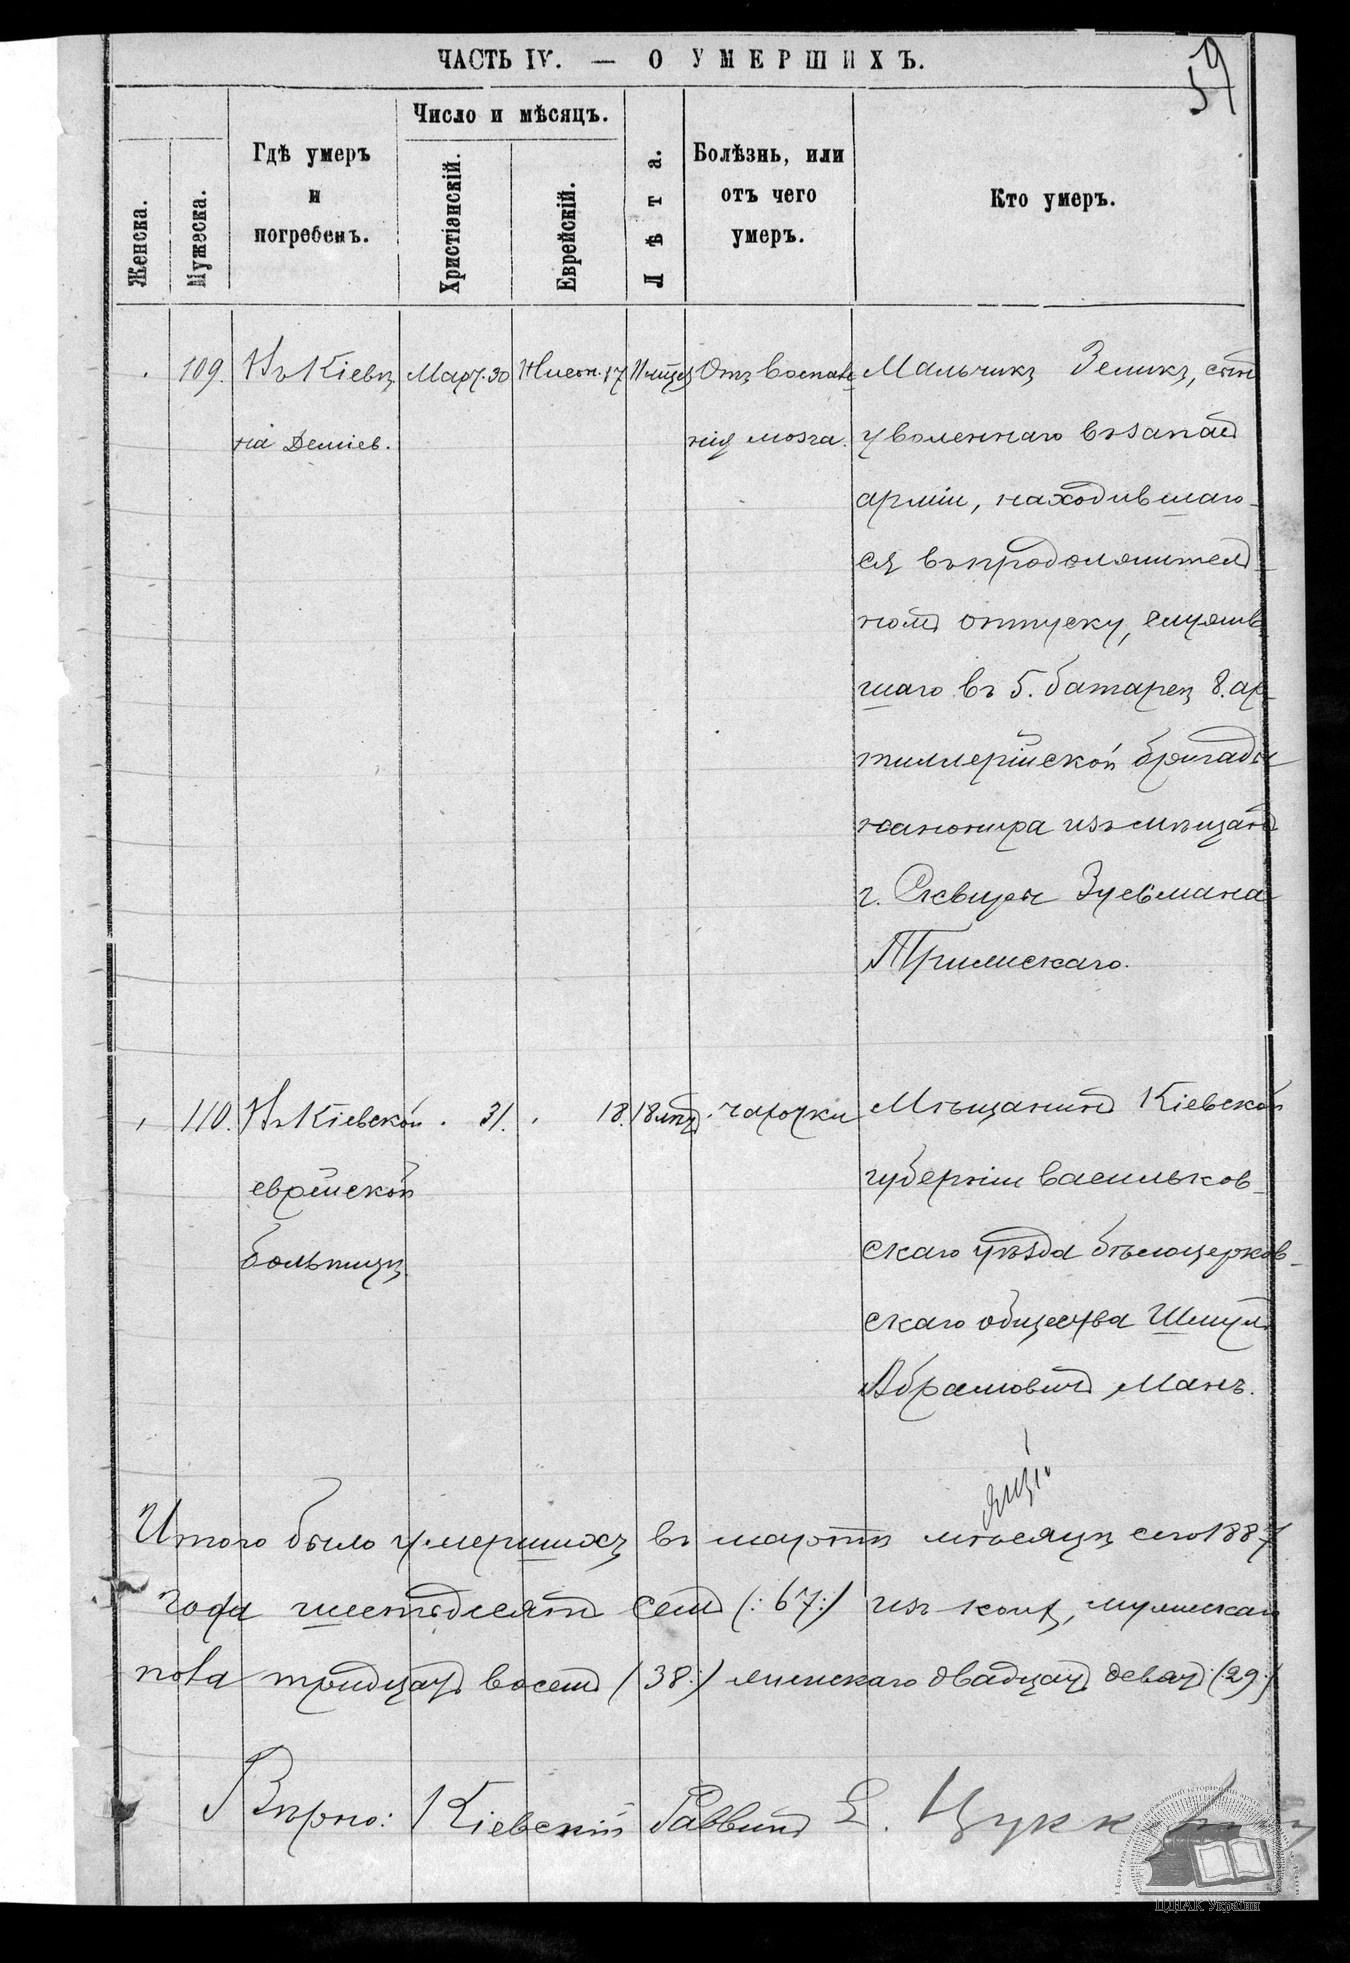 ЧАСТЬ IV. — О УМЕРШИХЪ.
59
Женска.
Мужеска.
Гдѣ умеръ
и
погребенъ.
Число и мѣсяцъ.
Христіанскій.
Еврейскій.
Лѣта.
Болѣзнь, или
отъ чего
умеръ.
Кто умеръ.
109. Въ Кіевѣ Март. 30 Нисон. 17 11 мѣсяц Отъ воспале Мальчикъ Зеликъ, сынъ
на Деміев. нія мозга. уволеннаго въ запасъ
арміи, находившаго-
ся въ продолжител-
номъ отпуску, служив
шаго въ 5. батареѣ 8. ар-
тиллерійской бригады
канонира изъ мѣщанъ
г. Сквиры Зусьмана
Трилискаго.
110. Въ Кіевской 31. 18. 18 лѣтъ чахотки Мѣщанинъ Кіевской
еврейской губерніи васильков-
больницѣ скаго уѣзда бѣлоцерков-
скаго общества Шмулъ
Абрамовичъ Манъ.
Итого было умершихъ въ мартѣ мѣсяцѣ сего 1887
года шестьдесятъ семъ (: 67 :) изъ коихъ, мужескаго
пола тридцать восемъ (38 :) женскаго двадцать девять (: 29 :)
Вѣрно: Кіевскій Раввинъ
ЦДІАК України